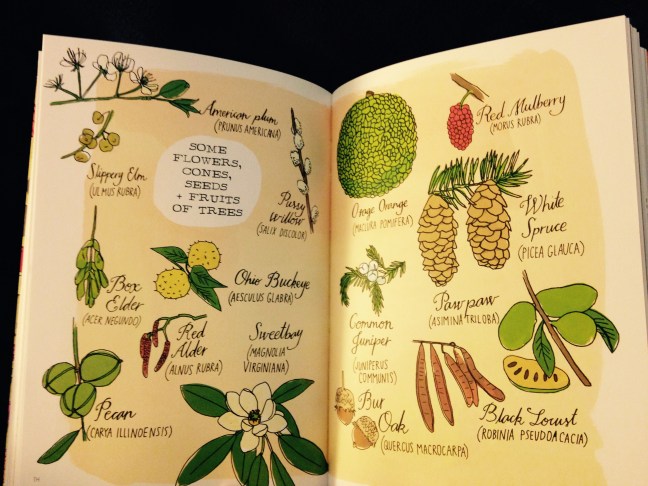 American plum
(PRUNUS AMERICANA)
SOME
FLOWERS,
CONES,
SEEDS
+ FRUITS
OF TREES
Slippery Elm
(ULMUS RUBRA)
Pussy
Willow
(SALIX DISCOLOR)
Box
Elder
(ACER NEGUNDO)
Ohio Buckeye
(AESCULUS GLABRA)
Red
Alder
(ALNUS RUBRA)
Sweetbay
(MAGNOLIA
VIRGINIANA)
Pecan
(CARYA ILLINOENSIS)
Red Mulberry
(MORUS RUBRA)
Osage Orange
(MACLURA POMIFERA)
White
Spruce
(PICEA GLAUCA)
Common
Juniper
(JUNIPERUS
COMMUNIS)
Paw paw
(ASIMINA TRILOBA)
Bur
Oak
(QUERCUS MACROCARPA)
Black Locust
(ROBINIA PSEUDOACACIA)